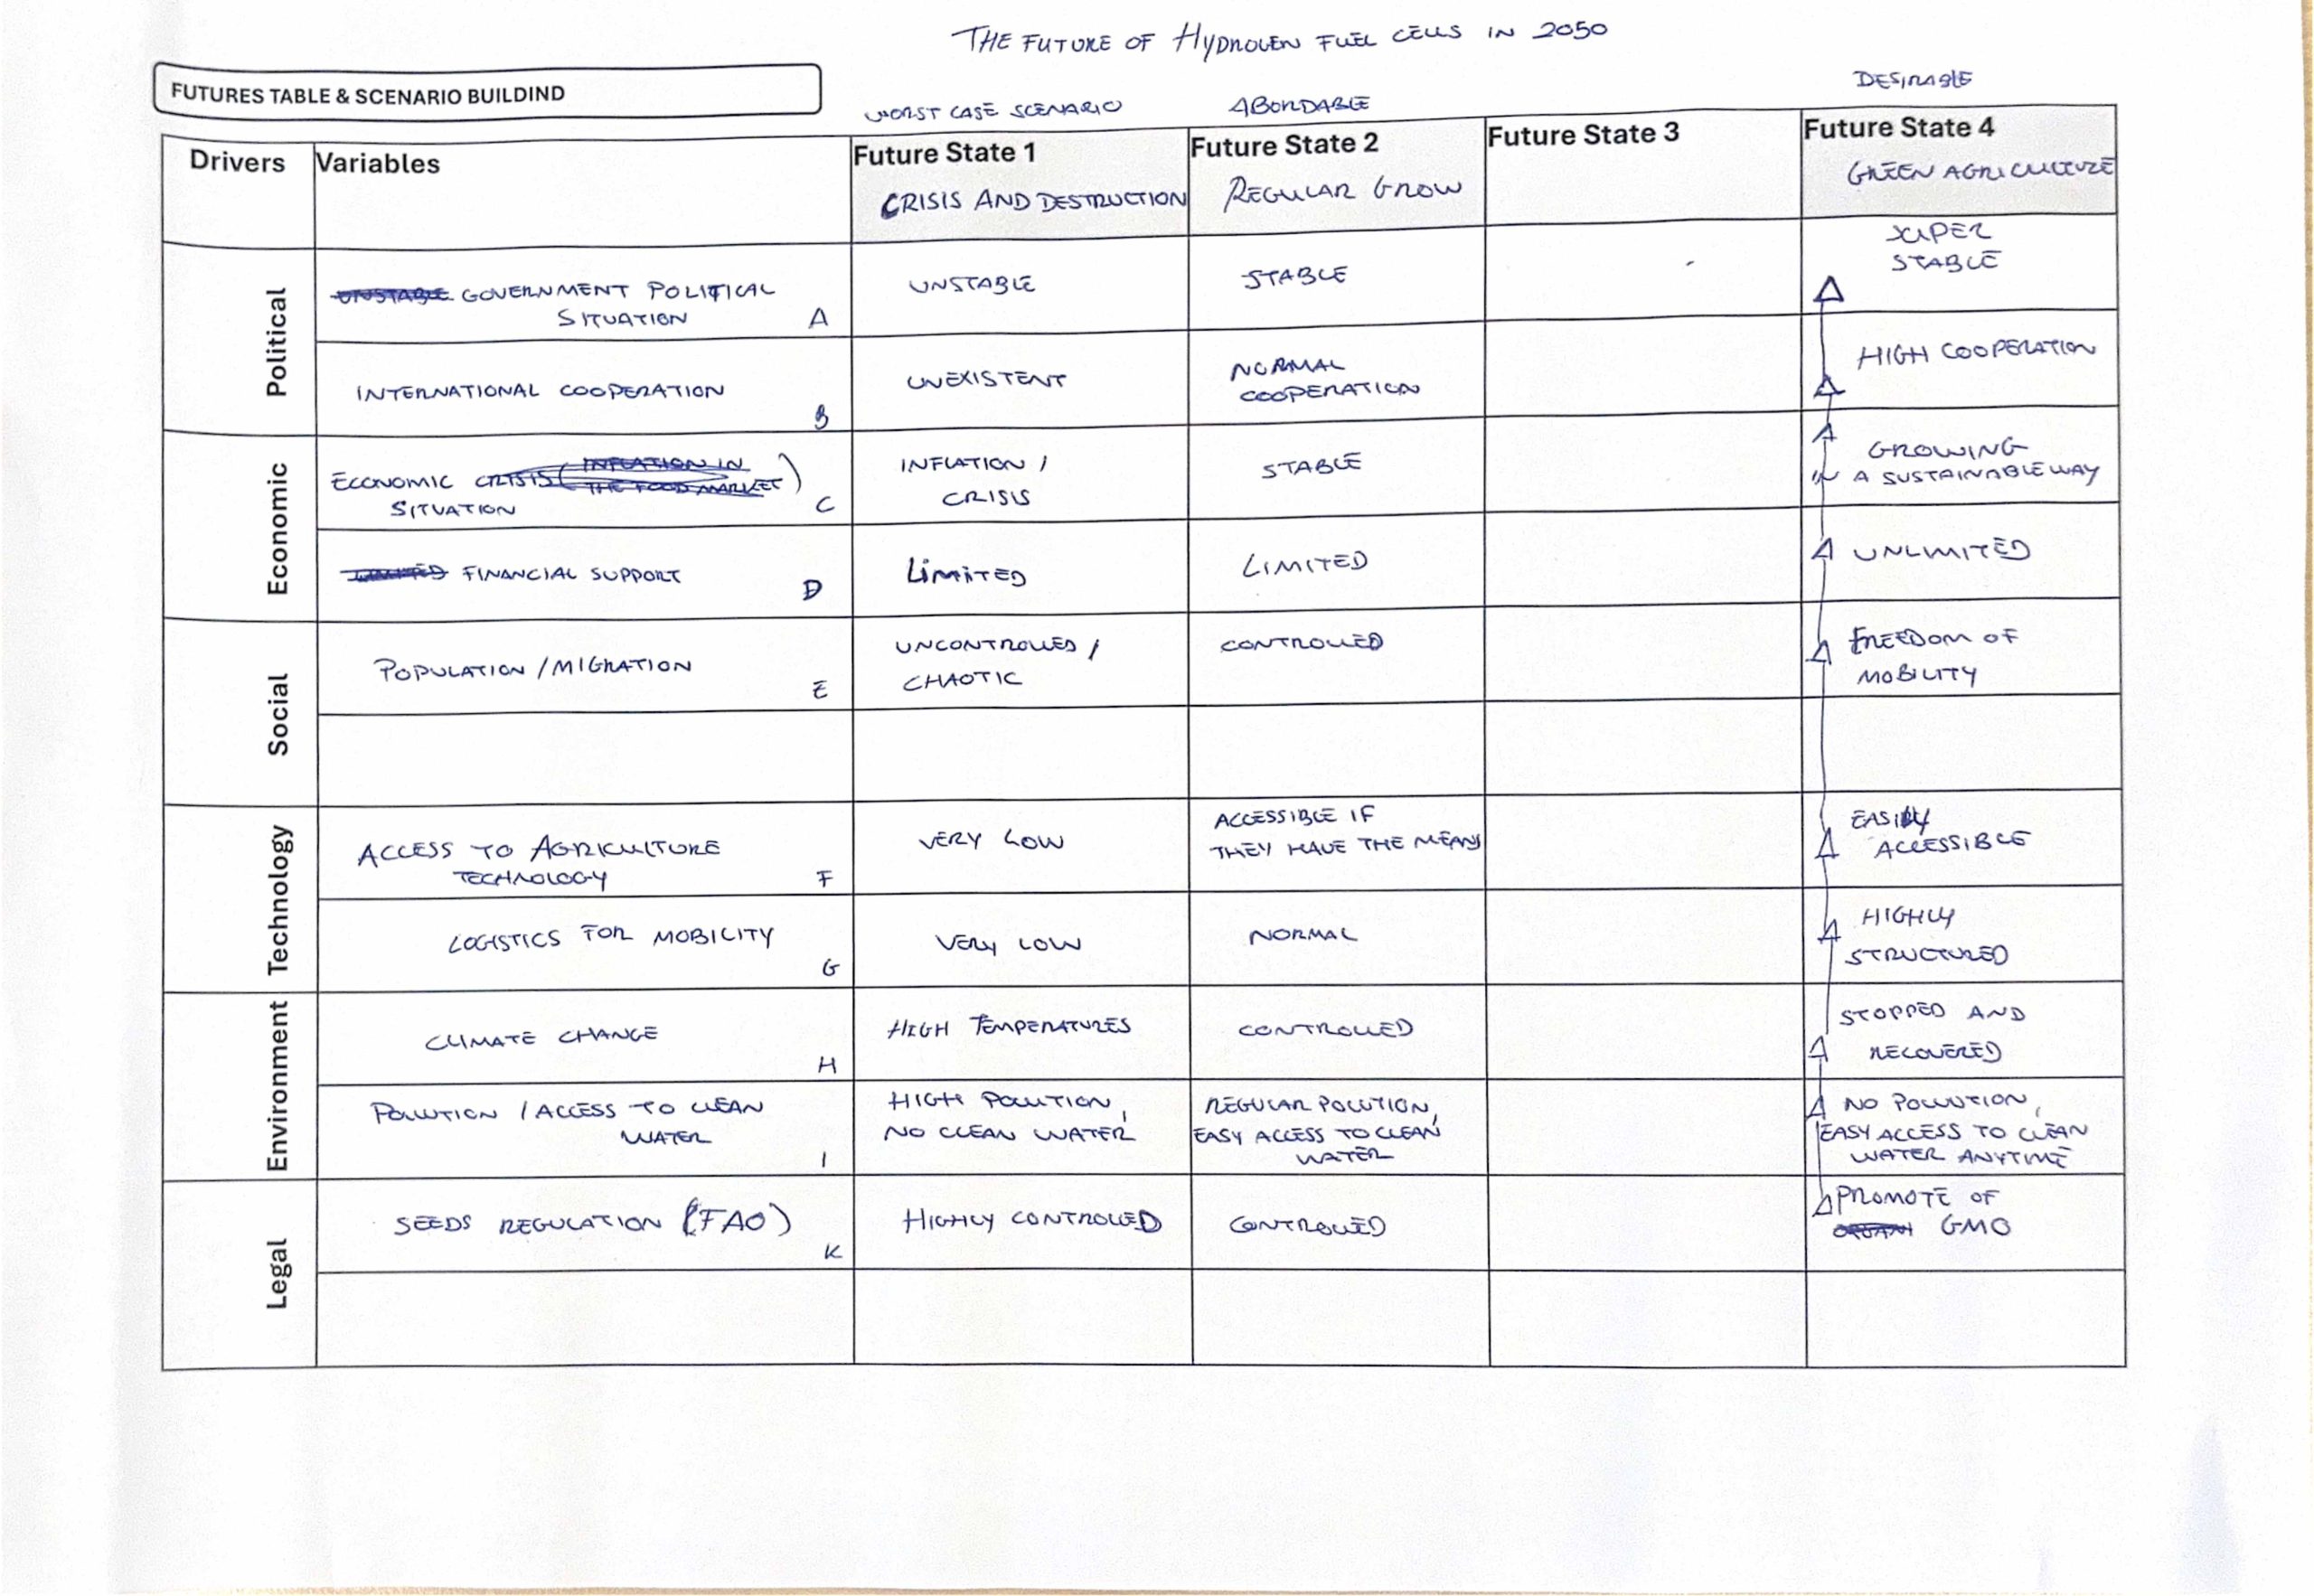 THE FUTURE OF HYDROGEN FUEL CELLS IN 2050
FUTURES TABLE & SCENARIO BUILDIND
WORST CASE SCENARIO
ABORDABLE
DESIRABLE
Drivers
Variables
Future State 1
CRISIS AND DESTRUCTION
Future State 2
REGULAR GROW
Future State 3
Future State 4
GREEN AGRICULTURE
Political
UNSTABLE GOVERNMENT POLITICAL
SITUATION
A
UNSTABLE
STABLE
SUPER
STABLE
INTERNATIONAL COOPERATION
B
UNEXISTENT
NORMAL
COOPERATION
HIGH COOPERATION
Economic
ECONOMIC CRISIS (INFLATION IN
THE FOOD MARKET)
SITUATION
C
INFLATION /
CRISIS
STABLE
GROWING
IN A SUSTAINABLE WAY
LIMITED FINANCIAL SUPPORT
D
LIMITED
LIMITED
UNLIMITED
Social
POPULATION / MIGRATION
E
UNCONTROLLED /
CHAOTIC
CONTROLLED
FREEDOM OF
MOBILITY
Technology
ACCESS TO AGRICULTURE
TECHNOLOGY
F
VERY LOW
ACCESSIBLE IF
THEY HAVE THE MEANS
EASILY
ACCESSIBLE
LOGISTICS FOR MOBILITY
G
VERY LOW
NORMAL
HIGHLY
STRUCTURED
Environment
CLIMATE CHANGE
H
HIGH TEMPERATURES
CONTROLLED
STOPPED AND
RECOVERED
POLLUTION / ACCESS TO CLEAN
WATER
I
HIGH POLLUTION,
NO CLEAN WATER
REGULAR POLUTION,
EASY ACCESS TO CLEAN
WATER
NO POLLUTION,
EASY ACCESS TO CLEAN
WATER ANYTIME
Legal
SEEDS REGULATION (FAO)
K
HIGHLY CONTROLLED
CONTROLLED
PROMOTE OF
GMO